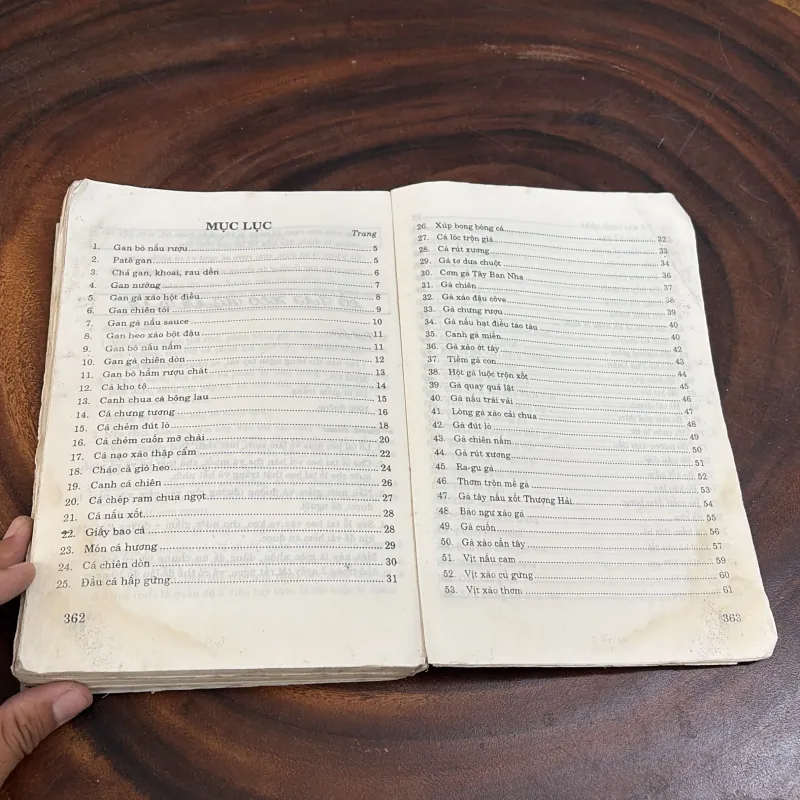 MỤC LỤC
Trang
1. Gan bò nấu rượu 5
2. Patê gan 5
3. Chả gan, khoai, rau dền 6
4. Gan nướng 7
5. Gan gà xáo hột điều 8
6. Gan chiên tỏi 9
7. Gan gà nấu sauce 10
8. Gan heo xào bột đậu 11
9. Gan bò nấu nấm 11
10. Gan gà chiên dòn 12
11. Gan bò hầm rượu chát 13
12. Cá kho tộ 14
13. Canh chua cá bông lau 15
14. Cá chưng tương 16
15. Cá chẻm đút lò 18
16. Cá chẻm cuốn mỡ chài 20
17. Cá nạo xào thập cẩm 22
18. Cháo cá giò heo 24
19. Canh cá chiên 26
20. Cá chép ram chua ngọt 27
21. Cá nấu xốt 28
22. Giấy bao cá 28
23. Món cá hương 29
24. Cá chiên dòn 30
25. Đầu cá hấp gừng 31
362
26. Xúp bong bóng cá 32
27. Cá lóc trộn giá 33
28. Cá rút xương 34
29. Gà tơ dưa chuột 34
30. Cơm gà Tây Ban Nha 36
31. Gà chiên 37
32. Gà xáo đậu côve 38
33. Gà chưng rượu 39
34. Gà nấu hạt điều táo tàu 40
35. Canh gà miến 40
36. Gà xáo ớt tây 42
37. Tiềm gà con 43
38. Hột gà luộc trộn xốt 44
39. Gà quay quả lật 45
40. Gà nấu trái vải 46
41. Lòng gà xáo cải chua 47
42. Gà đút lò 48
43. Gà chiên nấm 49
44. Gà rút xương 50
45. Ra-gu gà 51
46. Thơm trộn mề gà 52
47. Gà tây nấu xốt Thượng Hải 53
48. Bào ngư xáo gà 54
49. Gà cuốn 55
50. Gà xáo cần tây 56
51. Vịt nấu cam 57
52. Vịt xáo củ gừng 59
53. Vịt xáo thơm 60
61
363